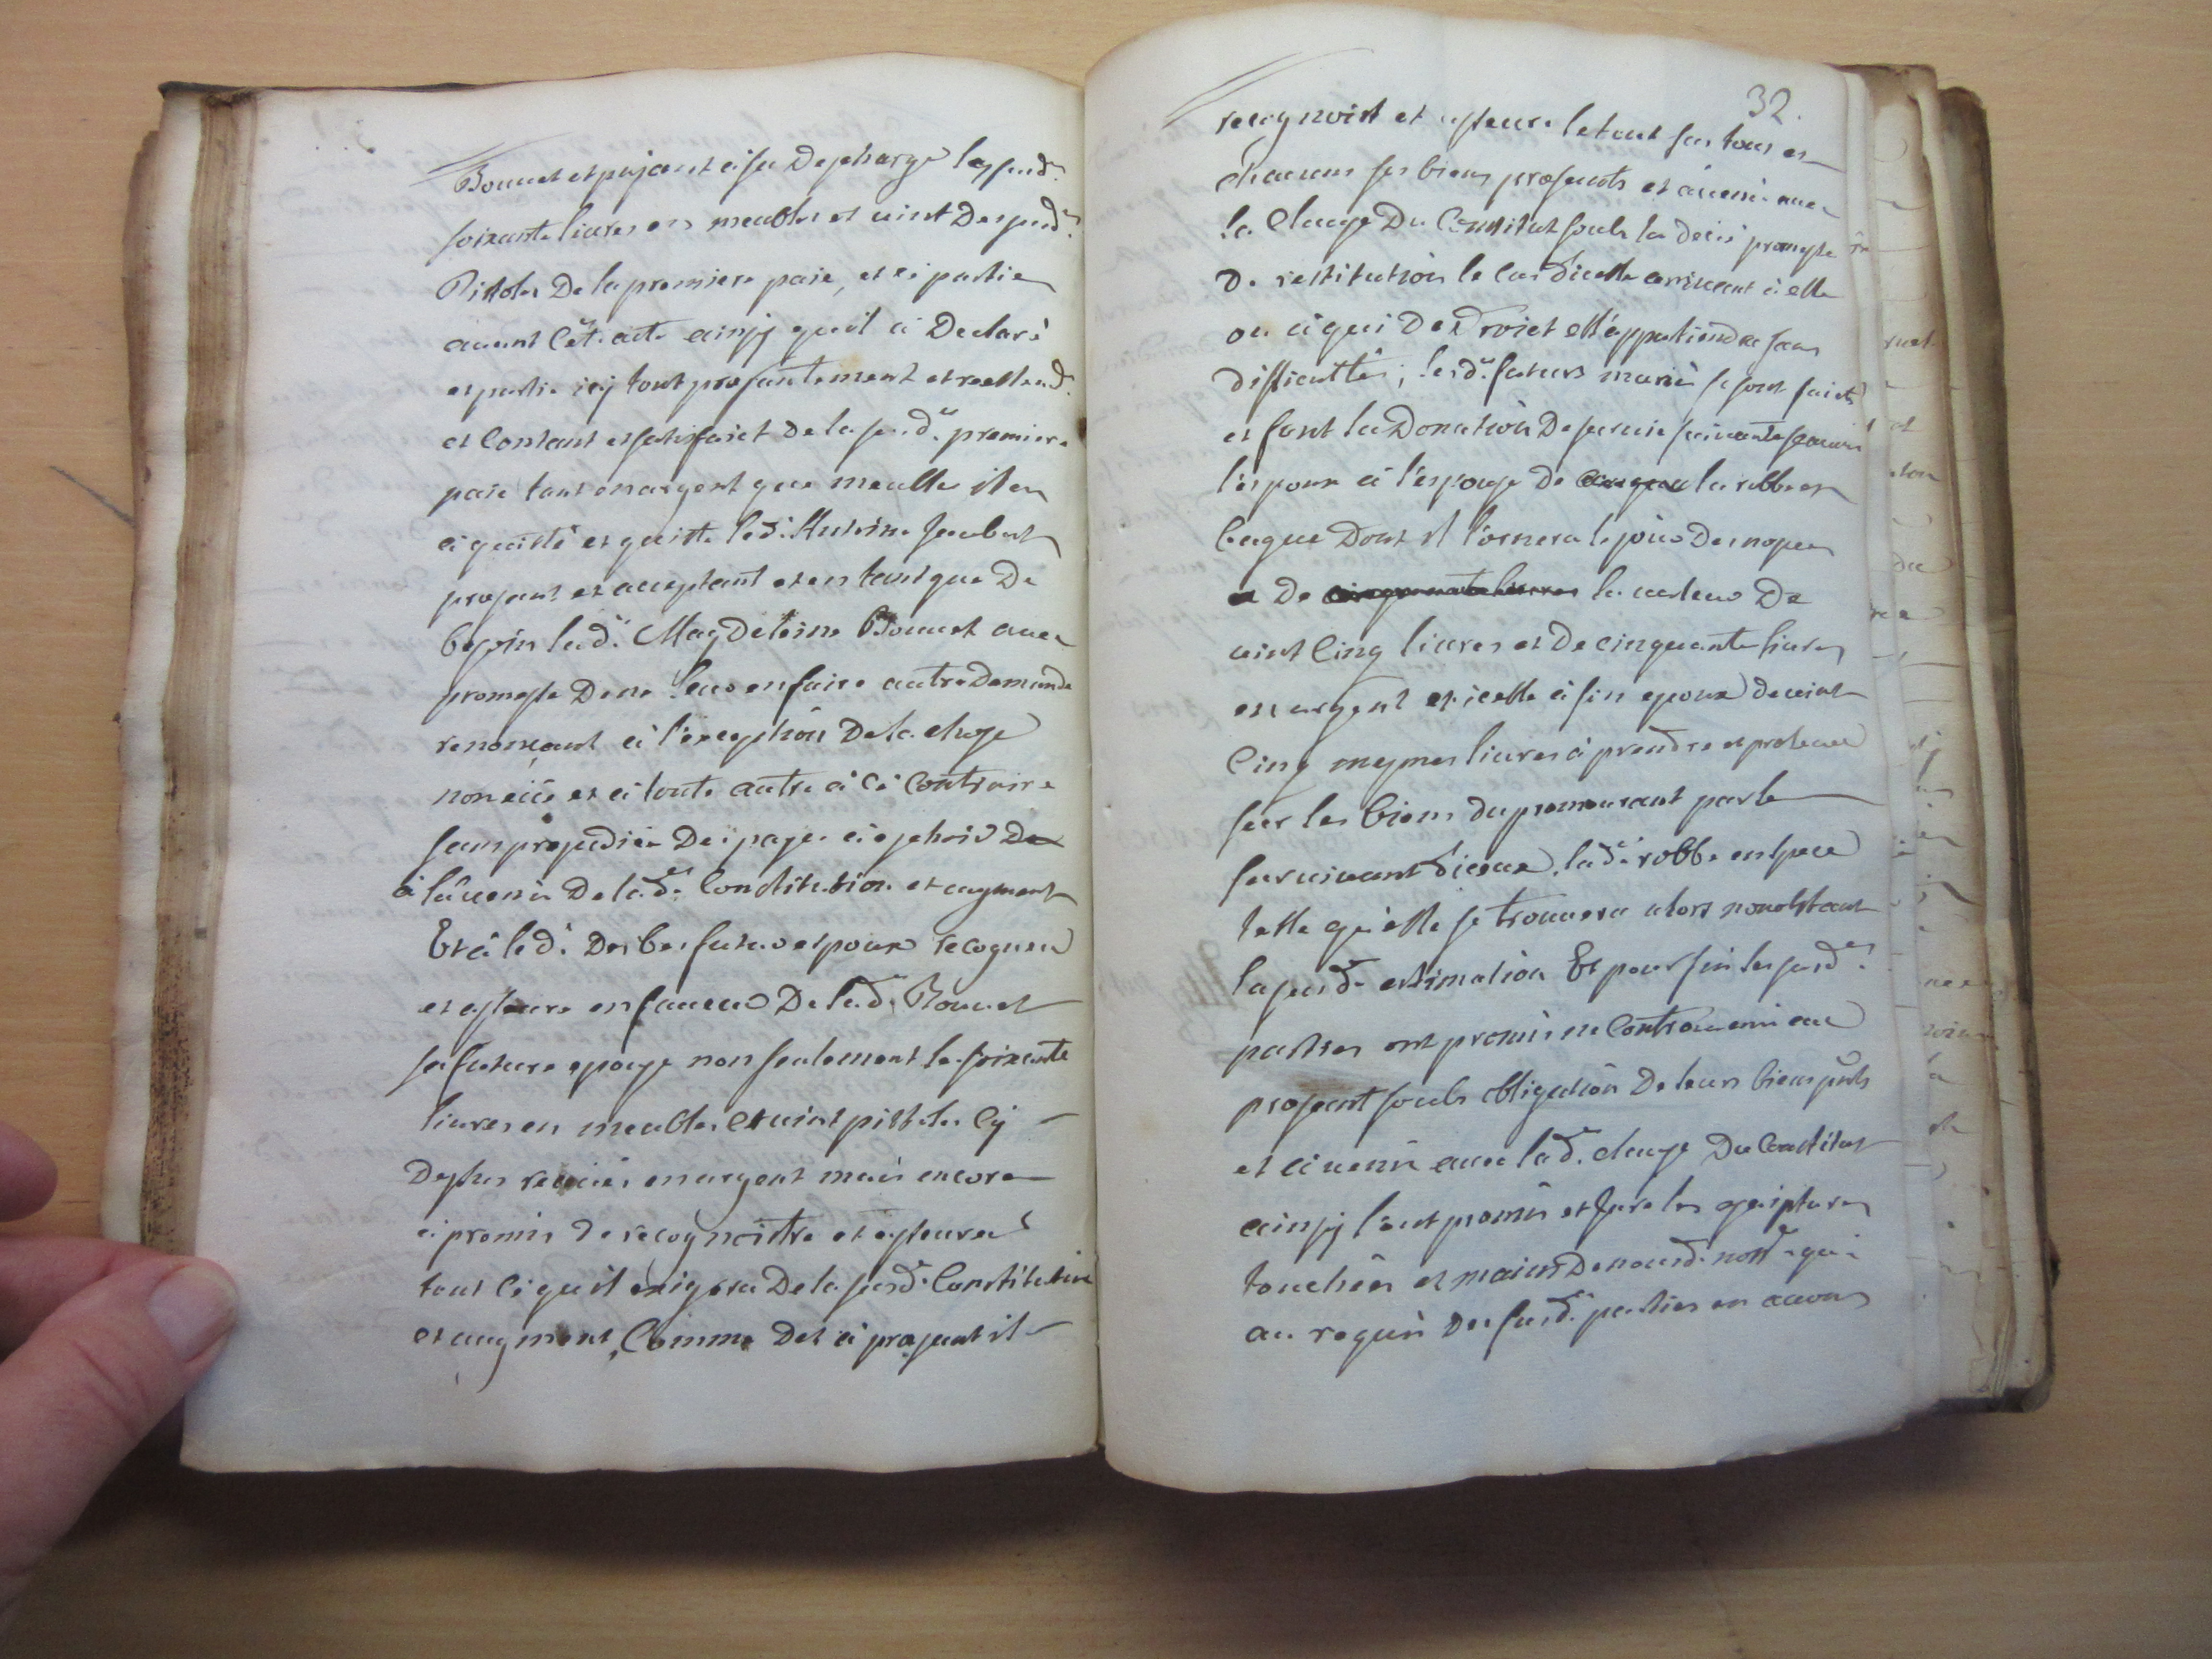 Bouuet et pajant à sa Descharge les susd.
soixante liures en meubles et uint Des susd.
Pistoles De la premiere paie, et ce partie
auant cét acte ainsj qu'il à Declaré
et partie icj tout presantement et reellem.
et Contant et satisfaict De la susd. premiere
paie tant en argent que meuble il en
à quitté et quitte led. Antoine Joubert
presant et acceptant et en tant que De
besoin lad. Magdeleine Bouuet auec
promesse De ne leur en faire autre Demande
renonçant à l'exception De la chose
non eüe et à toute autre à ce Contraire
sans prejudice Des paies à eschoir De
à l'auenir De lad. Constitution et augment
Et à led. Desbes futur espoux recogneu
et asseure en faueur De lad. Bouuet
sa future espouse non seulement les soixante
liures en meubles et uint pistoles Cy
Dessus receües en argent mais encore
à promis De recognoistre et asseurer
tout ce qu'il exigera De la susd. Constitution
et augment, Comme Des à present il
32.
recognoist et asseure le tout sur tous et
chacuns ses biens presents et àuenir auec
la Clause Du Constitut soubs la deüe promesse
De restitution le Cas d'icelle arriuant à elle
ou à qui De Droict ell'appartiendra sans
difficultés; lesd. futurs mariés se sont faicts
et font la Donation De suruie suiuante sçauoir
l'espoux à l'espouse De la robbe et
bague Dont il l'ornera le jour Des nopces
De la ualeur De
uint Cinq liures et De cinquante liures
en argent et icelle à son epoux de uint
Cinq mesmes liures à prendre et preleuer
sur les biens du premourant par le
suruiuant d'iceux, lad. robbe en espece
telle qu'elle se trouuera alors nonobstant
la susd. estimation Et pour fin les susd.
parties ont promis ne Contreuenir au
present soubs obligation De leurs biens pnts
et àuenir auec lad. clause Du Constitut
ainsj l'ont promis et Juré les escriptures
touchées et mains De nousd. not.re qui
au requis Des susd. parties en auons